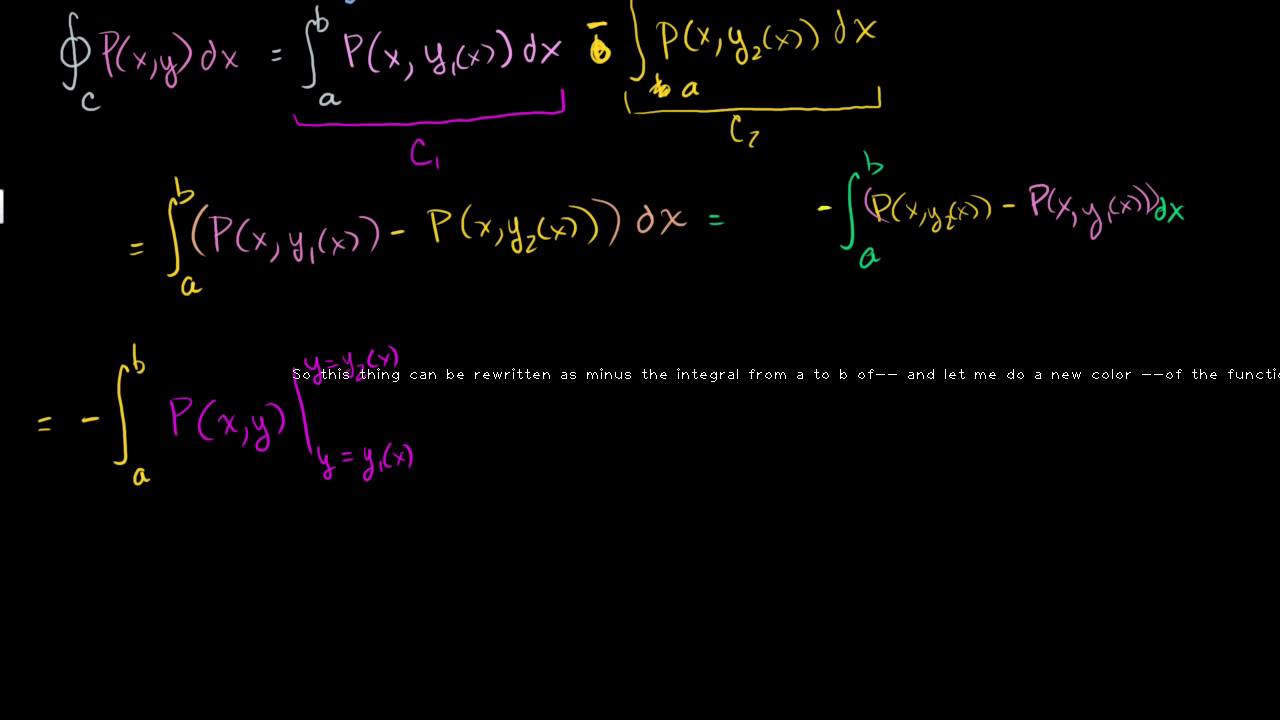 ∮_C P(x,y) dx = ∫_a^b P(x, y₁(x)) dx - ∫_a P(x, y₂(x)) dx
C₁ C₂
= ∫_a^b (P(x, y₁(x)) - P(x,y₂(x))) dx = - ∫_a^b (P(x,y₂(x)) - P(x,y₁(x))) dx
= - ∫_a^b P(x,y) |_{y = y₁(x)}^{y=y₂(x)}
So this thing can be rewritten as minus the integral from a to b of-- and let me do a new color --of the functi